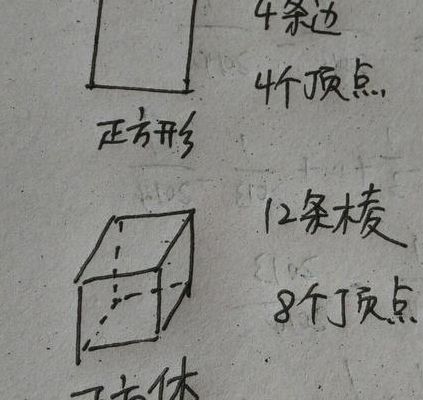 4条边
4个顶点.
正方形
12条棱
8个顶点
方体